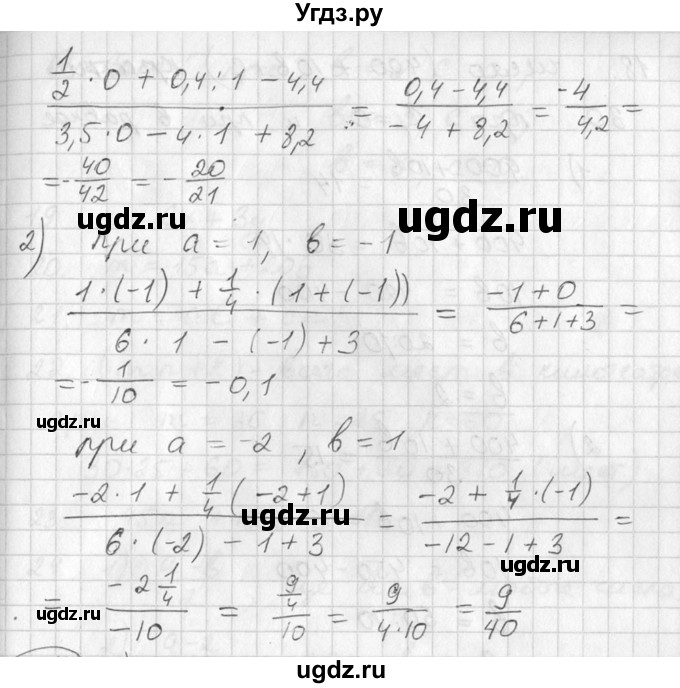 Угдз.ру
(1/2 · 0 + 0,4 : 1 − 4,4) / (3,5 · 0 − 4 · 1 + 8,2) = (0,4 − 4,4) / (−4 + 8,2) = −4 / 4,2 =
= −40/42 = −20/21
ugdz.ru ugdz.ru
2) при a = 1, b = −1
(1 · (−1) + 1/4 · (1 + (−1))) / (6 · 1 − (−1) + 3) = (−1 + 0) / (6 + 1 + 3) =
= −1/10 = −0,1
ugdz.ru ugdz.ru
при a = −2, b = 1
(−2 · 1 + 1/4 (−2 + 1)) / (6 · (−2) − 1 + 3) = (−2 + 1/4 · (−1)) / (−12 − 1 + 3) =
ugdz.ru
= (−2 1/4) / (−10) = (9/4) / 10 = 9 / (4 · 10) = 9/40
ugdz.ru